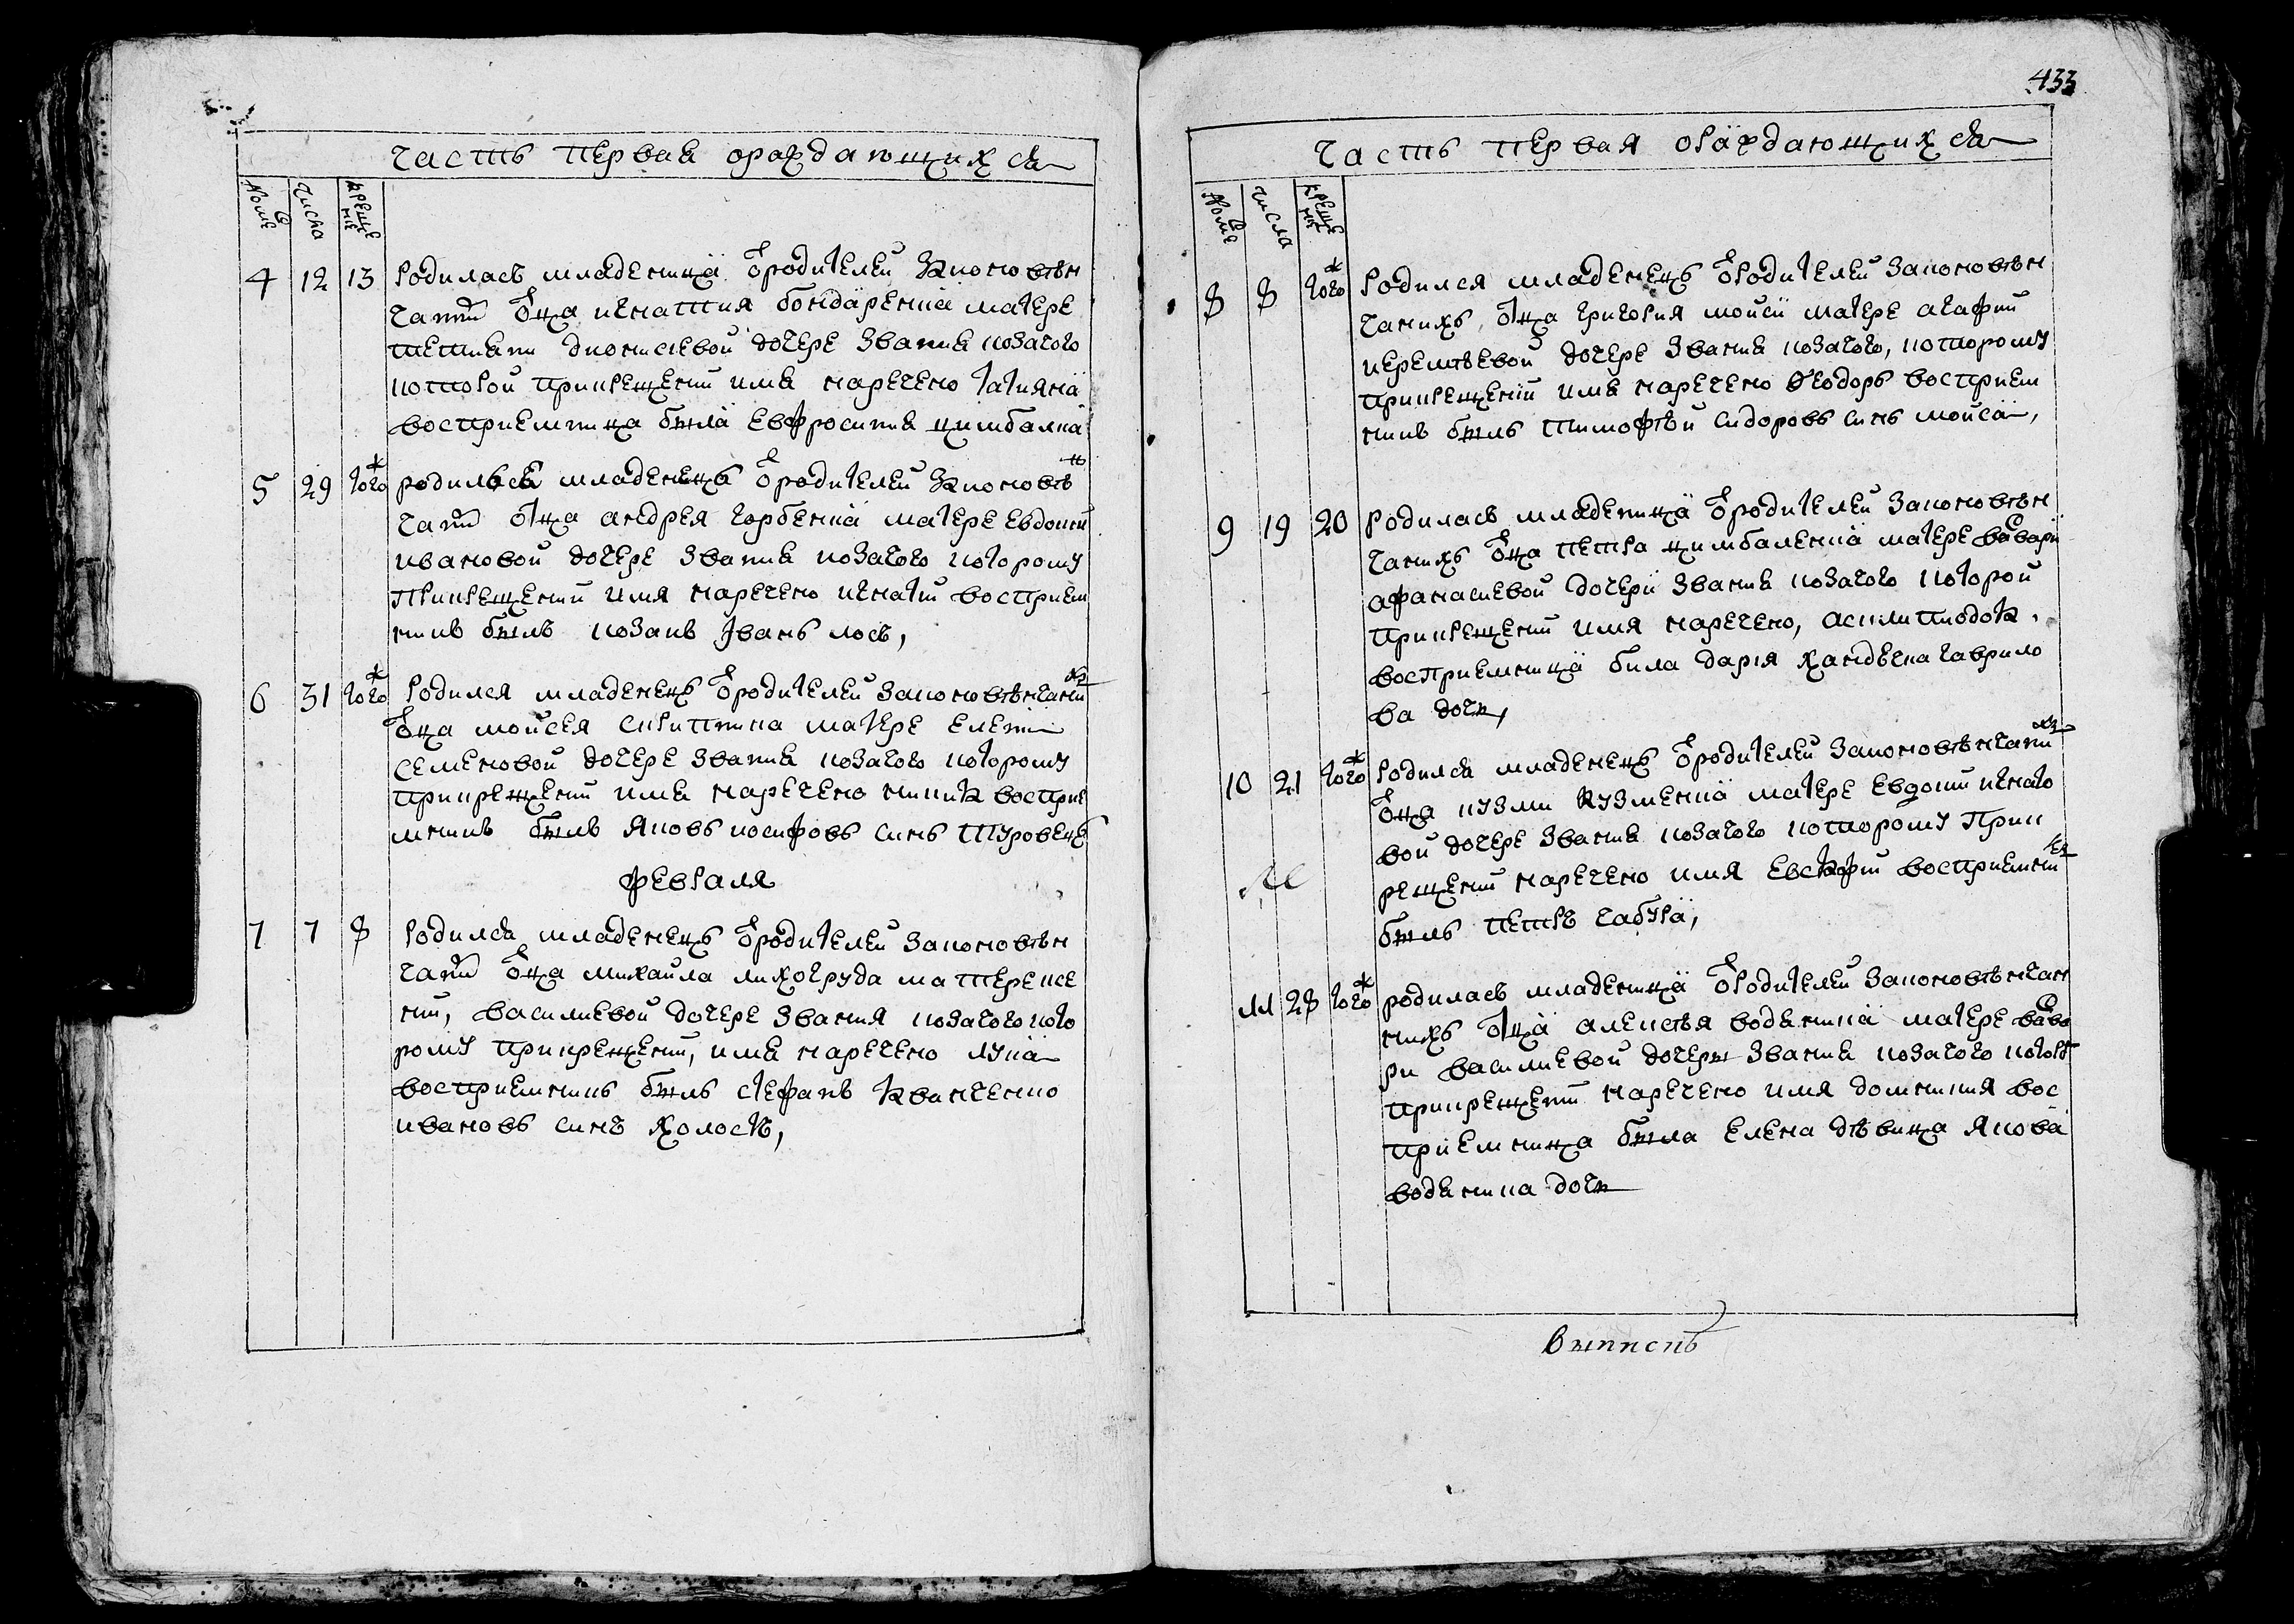 433
часть первая ораждающихся
Номе
числа
креще
ние
4 12 13 родилась младеница ѿ родителей законовѣн
чанн отца игнатия бондаренка матере
дионисиевой дочере звания козачого
которой прикрещении имя наречено татияна
восприемница была евфросиния цимбалка
5 29 того ж родилься младенецъ ѿ родителей законовѣн
чанн отца андрея горбенка матере евдокии
ивановой дочере звания козачого которому
прикрещении имя наречено игнатий восприем
никъ былъ козакъ Iванъ лось,
6 31 того ж родился младенецъ ѿ родителей законовѣнчаних
отца мойсея скрипника матере елени
семеновой дочере звания козачого которому
прикрещении имя наречено никита восприе
мникъ былъ яковъ иосифовъ синъ туровецъ
февраля
7 7 8 родился младенецъ ѿ родителей законовѣн
чанн отца михаила лихогруда матере ксе
нии, василиевой дочере звания козачого кото
рому прикрещении, имя наречено лука
восприемникъ былъ стефанъ квитченко
ивановъ синъ холостъ,
часть первая ораждающихся
Номе
числа
креще
ние
8 8 того ж родился младенецъ ѿ родителей законовѣн
чанихъ отца григория мойси матере агафии
иеремѣевой дочере звания козачого, которому
прикрещении имя наречено Ѳеодоръ восприем
никъ былъ тимофѣй сидоровъ синъ мойса,
9 19 20 родилась младеница ѿ родителей законовѣн
чанихъ отца петра цимбаленка матере варвари
афанасиевой дочери звания козачого которой
прикрещении имя наречено,
восприемница била дарія гаврило
ва дочь,
10 21 того ж родился младенецъ ѿ родителей законовѣнчаних
отца кузми кузменка матере евдокии игнато
вой дочере звания козачого которому прик
рещении наречено имя восприемникъ
былъ петръ чабура,
11 28 того ж родилась младеница ѿ родителей законовѣнчан
нихъ отца алексѣя водяника матере варва
ри василиевой дочеры звания козачого которой
прикрещении наречено имя домникия вос
приемница была елена дѣвица якова
водяника дочь
выпись